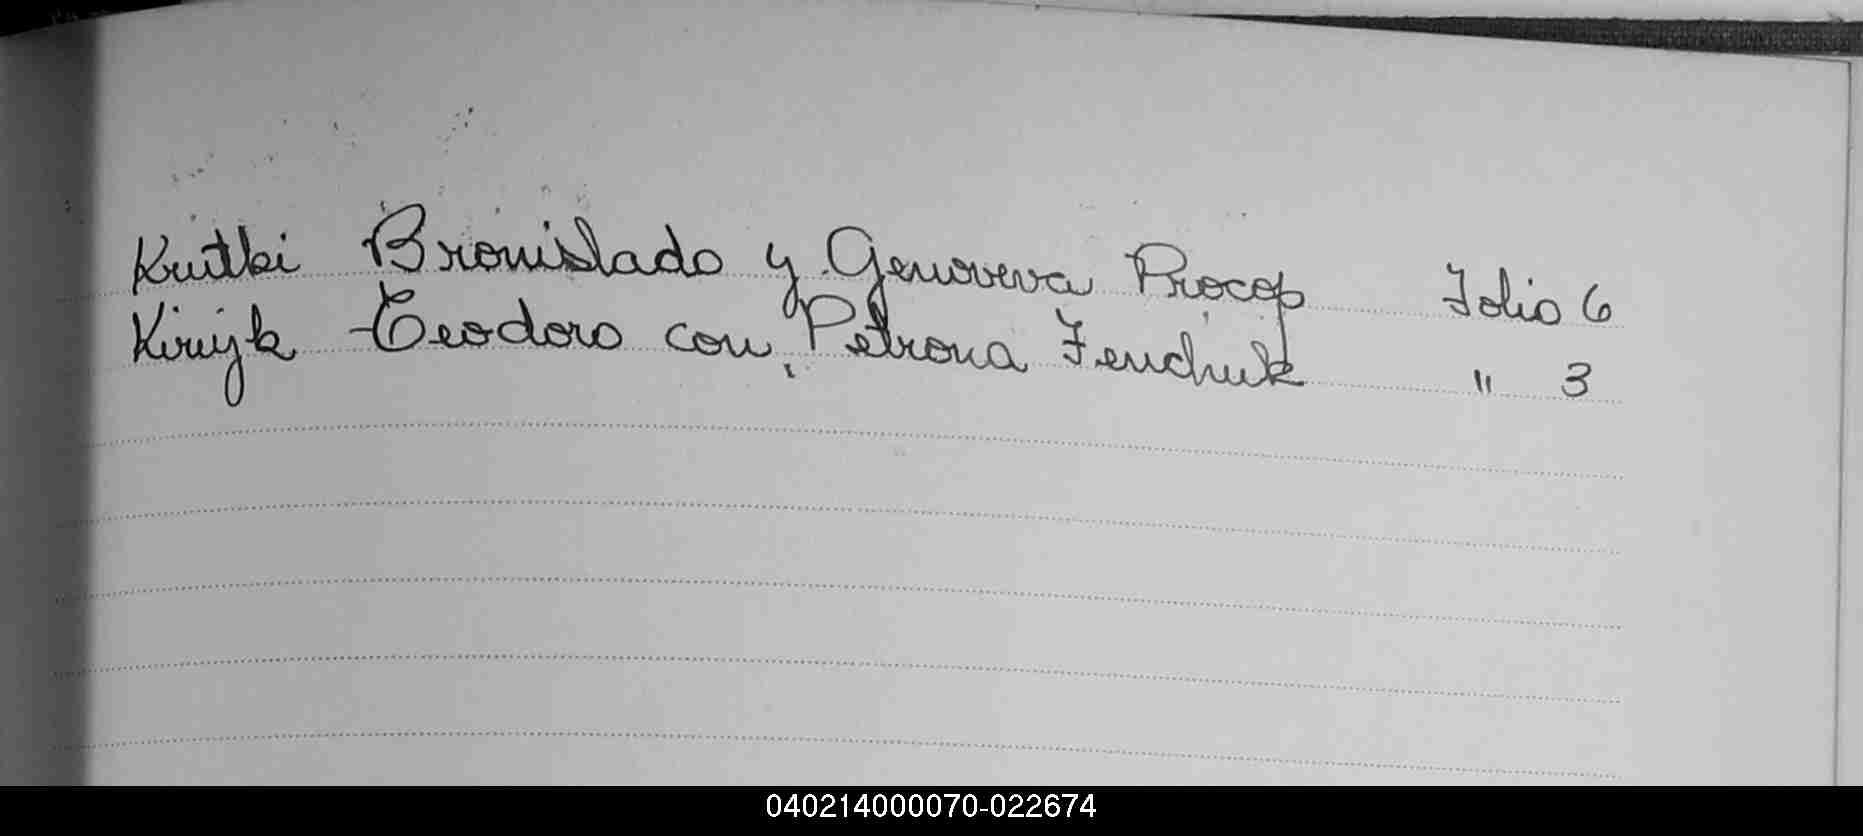 Krutki Bronislado y Genoveva Procop Folio 6
Kiriyk Teodoro con Petrona Fenchuk " 3
040214000070-022674